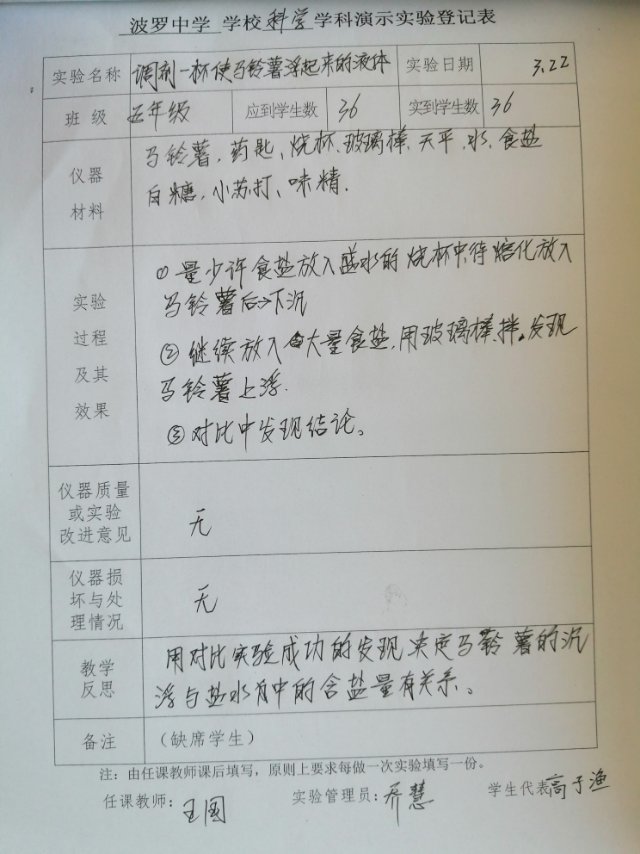 波罗中学 学校 科学 学科演示实验登记表
实验名称 调剂一杯使马铃薯浮起来的液体 实验日期 3.22
班 级 五年级 应到学生数 36 实到学生数 36
仪器 材料 马铃薯、药匙、烧杯、玻璃棒、天平、水、食盐
白糖、小苏打、味精.
实验 过程 及其 效果 ①量少许食盐放入盛水的烧杯中,待熔化放入
马铃薯后->下沉
②继续放入大量食盐,用玻璃棒拌。发现
马铃薯上浮.
③对比中发现结论。
仪器质量 或实验 改进意见 无
仪器损 坏与处 理情况 无
教学 反思 用对比实验成功的发现决定马铃薯的沉
浮与盐水中的含盐量有关系。
备注 (缺席学生)
注:由任课教师课后填写,原则上要求每做一次实验填写一份。
任课教师: 王国 实验管理员: 乔慧 学生代表 高子渔